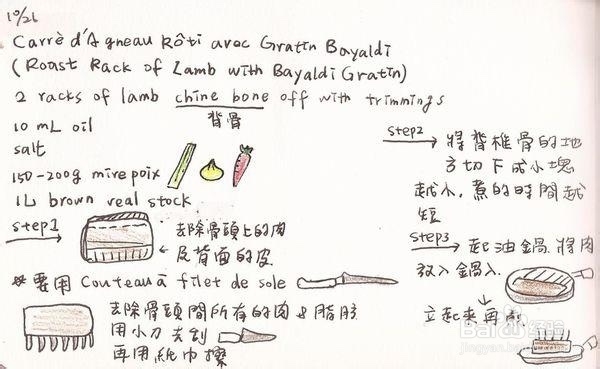 10/26
Carrè d'Agneau Rôti avec Gratin Bayaldi
(Roast Rack of Lamb with Bayaldi Gratin)
2 racks of lamb chine bone off with trimmings
背骨
10 mL oil
salt
150-200g mirepoix
1L brown veal stock
step1
去除骨頭上的肉
及背面的皮
* 要用 Couteau à filet de sole
去除骨頭間所有的肉 & 脂肪
用小刀去刮
再用紙巾擦
step2
將背椎骨的地
方切下成小塊
越小,煮的時間越
短
step3
起油鍋.將肉
放入鍋入.
立起來再
Baidu经验
jingyan.baidu.com